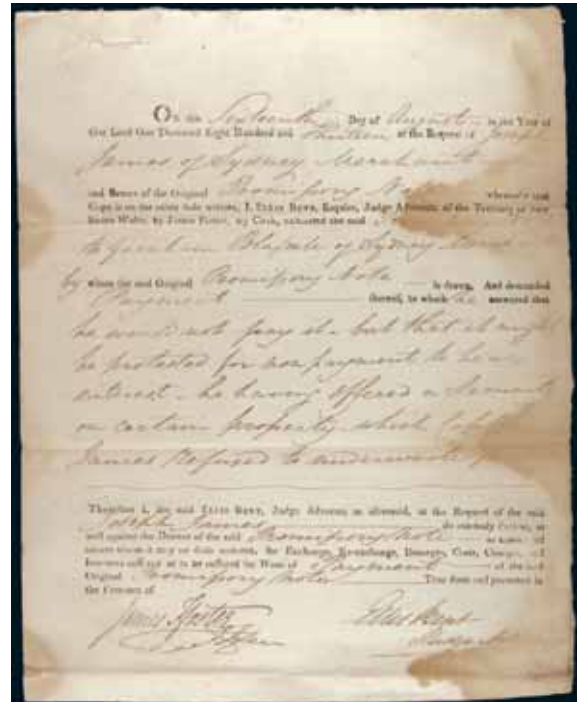 On this Sixteenth Day of August in the Year of
Our Lord One Thousand Eight Hundred and thirteen at the Request of Joseph
James of Sydney Merchant
and Bearer of the Original Promissory Note whereof a true
Copy is on the other Side written, I, ELLIS BENT, Esquire, Judge Advocate of the Territory of New
South Wales, by James Foster, my Clerk, exhibited the said
to Blaxcell of Sydney
by whom the said Original Promissory Note is drawn, And demanded
Payment thereof, to which he answered that
he would not pay it but that it might
be protested for non payment to bear
interest he having offered a Security
on certain property which
James refused to
Therefore I, the said ELLIS BENT, Judge Advocate as aforesaid, at the Request of the said
Joseph James do solemnly Protest, as
well against the Drawer of the said Promissory Note as against all
others whom it may or doth concern, for Exchange, Re-exchange, Damages, Costs, Charges, and
Interests suffered or to be suffered for Want of Payment of the said
Original Promissory Note Thus done and protested in
the Presence of
James Foster Ellis Bent